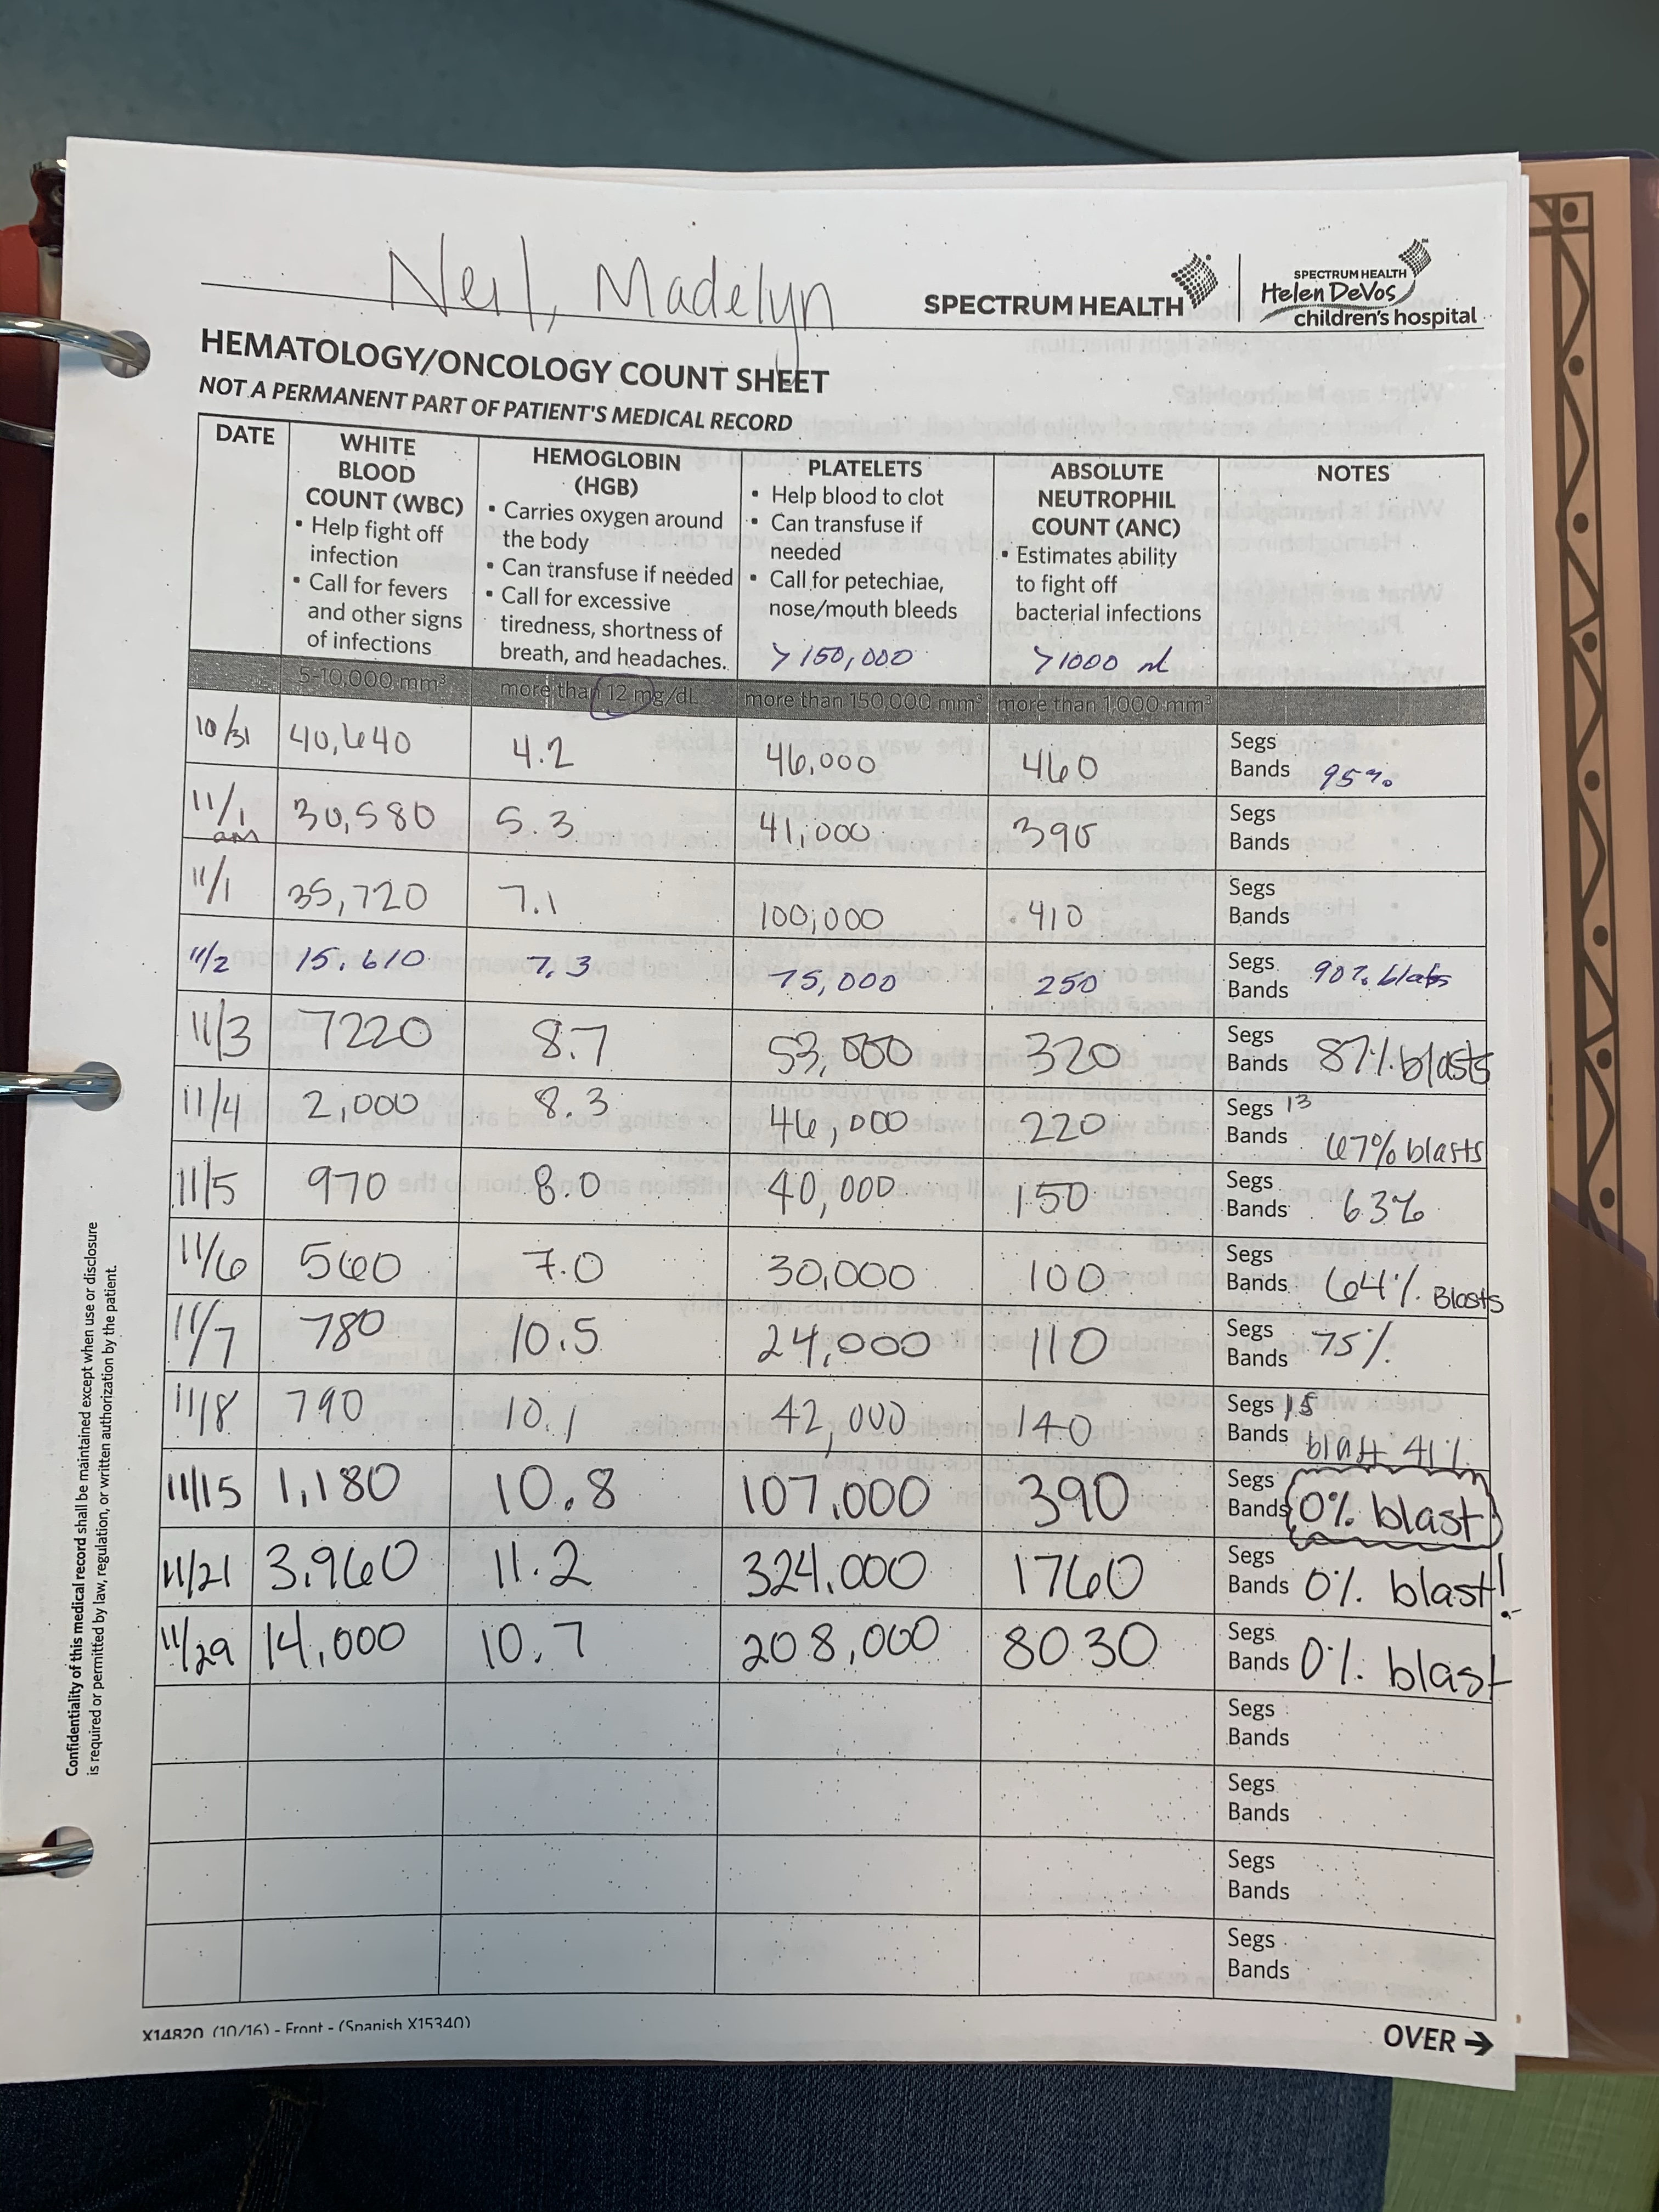 Neil, Madelyn
SPECTRUM HEALTH
SPECTRUM HEALTH
Helen DeVos
children's hospital
HEMATOLOGY/ONCOLOGY COUNT SHEET
NOT A PERMANENT PART OF PATIENT'S MEDICAL RECORD
DATE
WHITE
BLOOD
COUNT (WBC)
• Help fight off
infection
• Call for fevers
and other signs
of infections
HEMOGLOBIN
(HGB)
• Carries oxygen around
the body
• Can transfuse if needed
• Call for excessive
tiredness, shortness of
breath, and headaches.
PLATELETS
• Help blood to clot
• Can transfuse if
needed
• Call for petechiae,
nose/mouth bleeds
>150,000
ABSOLUTE
NEUTROPHIL
COUNT (ANC)
• Estimates ability
to fight off
bacterial infections
>1000
NOTES
5-10,000 mm³ more than 12 mg/dL more than 150,000 mm³ more than 1,000 mm³
10/31 40,640 4.2 46,000 460 Segs
Bands 95%
11/1 30,580 5.3 41,000 390 Segs
am Bands
11/1 35,720 7.1 100,000 410 Segs
Bands
11/2 15,610 7.3 75,000 250 Segs
Bands 90% blats
11/3 7220 8.7 53,000 320 Segs
Bands 87% blasts
11/4 2,000 8.3 46,000 220 Segs 13
Bands 67% blasts
11/5 970 8.0 40,000 150 Segs
Bands 63%
11/6 560 7.0 30,000 100 Segs
Bands 64% Blasts
11/7 780 10.5 24,000 110 Segs 75%
Bands
11/8 790 10.1 42,000 140 Segs 15
Bands blast 41%
11/15 1,180 10.8 107,000 390 Segs
Bands 0% blast
11/21 3,960 11.2 324,000 1760 Segs
Bands 0% blast!
11/29 14,000 10.7 208,000 8030 Segs
Bands 0% blast
Segs
Bands
Segs
Bands
Segs
Bands
Segs
Bands
X14820 (10/16) - Front - (Spanish X15340)
OVER →
Confidentiality of this medical record shall be maintained except when use or disclosure
is required or permitted by law, regulation, or written authorization by the patient.